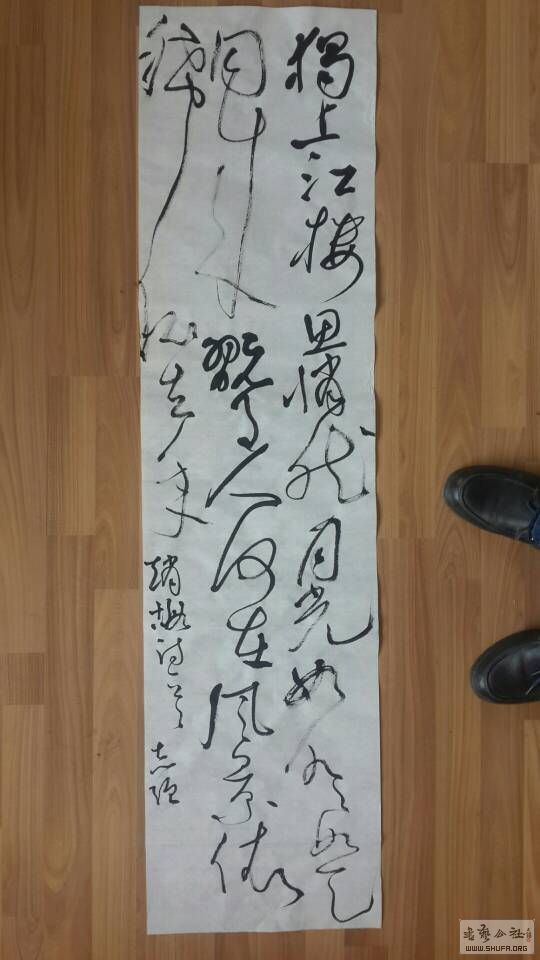 獨上江樓思悄然月光如水水如天
同来翫月人何在風景依
稀似去年 趙嘏詩一首 志强
書藝公社
WWW.SHUFA.ORG